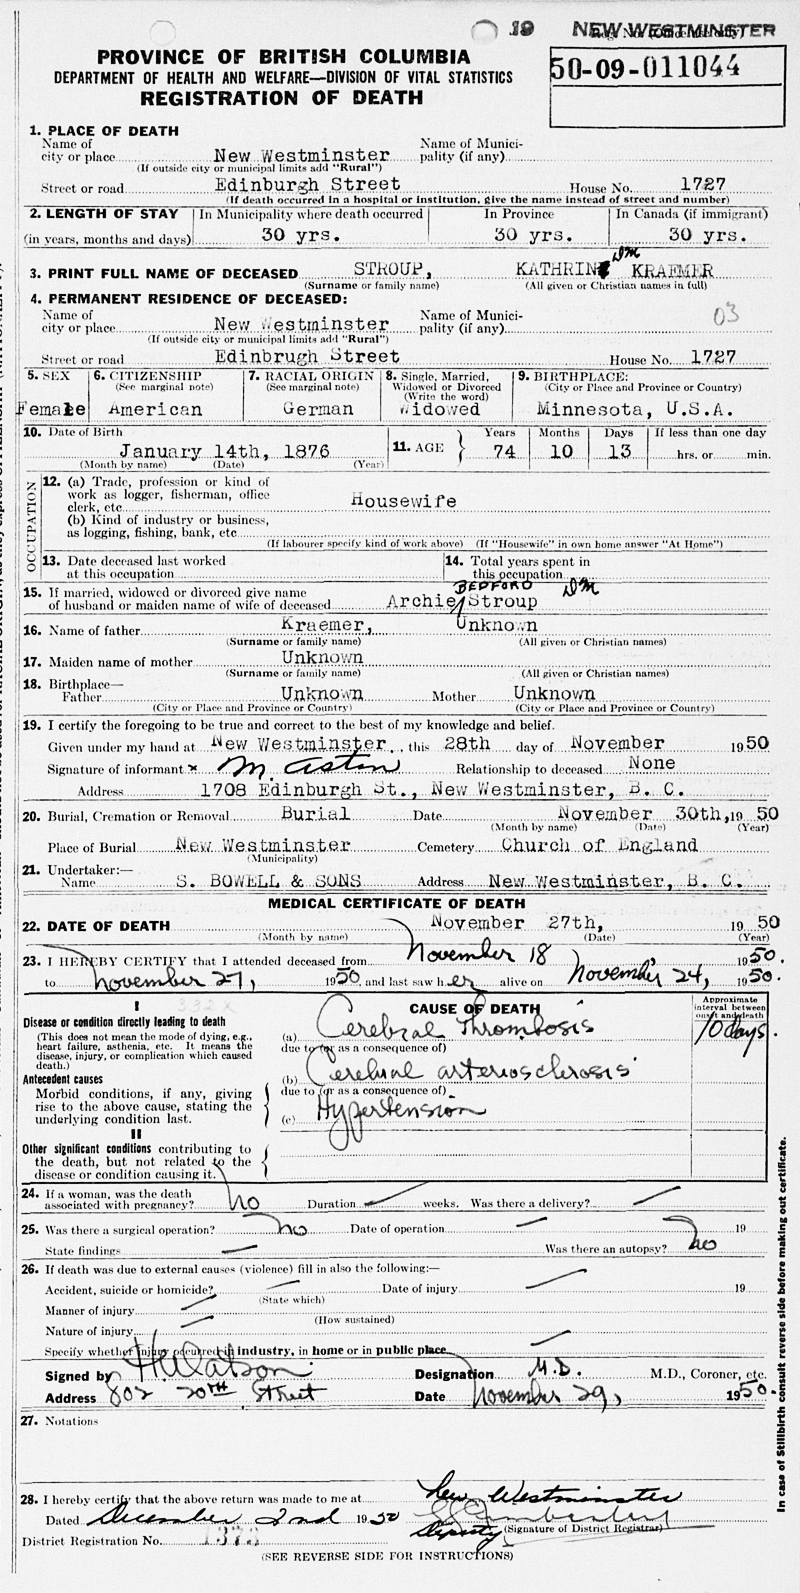 19 NEW WESTMINSTER
50-09-011044
PROVINCE OF BRITISH COLUMBIA
DEPARTMENT OF HEALTH AND WELFARE—DIVISION OF VITAL STATISTICS
REGISTRATION OF DEATH
1. PLACE OF DEATH
Name of city or place New Westminster Name of Municipality (if any)
(If outside city or municipal limits add "Rural")
Street or road Edinburgh Street House No. 1727
(If death occurred in a hospital or institution, give the name instead of street and number)
2. LENGTH OF STAY (in years, months and days) In Municipality where death occurred In Province In Canada (if immigrant)
30 yrs. 30 yrs. 30 yrs.
DM
3. PRINT FULL NAME OF DECEASED STROUP, KATHRIN KRAEMER
(Surname or family name) (All given or Christian names in full)
4. PERMANENT RESIDENCE OF DECEASED:
03
Name of city or place New Westminster Name of Municipality (if any)
(If outside city or municipal limits add "Rural")
Street or road Edinbrugh Street House No. 1727
5. SEX 6. CITIZENSHIP (See marginal note) 7. RACIAL ORIGIN (See marginal note) 8. Single, Married, Widowed or Divorced (Write the word) 9. BIRTHPLACE: (City or Place and Province or Country)
Female American German Widowed Minnesota, U.S.A.
10. Date of Birth 11. AGE Years Months Days If less than one day
January 14th, 1876 74 10 13 hrs. or min.
(Month by name) (Date) (Year)
OCCUPATION
12. (a) Trade, profession or kind of work as logger, fisherman, office clerk, etc. Housewife
(b) Kind of industry or business, as logging, fishing, bank, etc
(If labourer specify kind of work above) (If "Housewife" in own home answer "At Home")
13. Date deceased last worked at this occupation 14. Total years spent in this occupation
BEDFORD DM
15. If married, widowed or divorced give name of husband or maiden name of wife of deceased Archie Stroup
16. Name of father Kraemer, Unknown
(Surname or family name) (All given or Christian names)
17. Maiden name of mother Unknown
(Surname or family name) (All given or Christian names)
18. Birthplace—
Father Unknown Mother Unknown
(City or Place and Province or Country) (City or Place and Province or Country)
19. I certify the foregoing to be true and correct to the best of my knowledge and belief.
Given under my hand at New Westminster, this 28th day of November 1950
Signature of informant x M. Aston Relationship to deceased None
Address 1708 Edinburgh St., New Westminster, B. C.
20. Burial, Cremation or Removal Burial Date November 30th, 1950
(Month by name) (Date) (Year)
Place of Burial New Westminster Cemetery Church of England
(Municipality)
21. Undertaker:—
Name S. BOWELL & SONS Address New Westminster, B. C.
MEDICAL CERTIFICATE OF DEATH
22. DATE OF DEATH November 27th, 1950
(Month by name) (Date) (Year)
23. I HEREBY CERTIFY that I attended deceased from November 18 1950.
to November 27, 1950, and last saw her alive on November 24, 1950.
332X
I CAUSE OF DEATH Approximate interval between onset and death
Disease or condition directly leading to death (a) Cerebral Thrombosis 10 days.
(This does not mean the mode of dying, e.g., heart failure, asthenia, etc. It means the disease, injury, or complication which caused death.)
due to (or as a consequence of)
Antecedent causes (b) Cerebral arteriosclerosis
Morbid conditions, if any, giving rise to the above cause, stating the underlying condition last.
due to (or as a consequence of)
(c) Hypertension
II
Other significant conditions contributing to the death, but not related to the disease or condition causing it.
24. If a woman, was the death associated with pregnancy? no Duration — weeks. Was there a delivery? —
25. Was there a surgical operation? no Date of operation — 19
State findings — Was there an autopsy? no
26. If death was due to external causes (violence) fill in also the following:—
Accident, suicide or homicide? — Date of injury — 19
(State which)
Manner of injury —
(How sustained)
Nature of injury —
Specify whether injury occurred in industry, in home or in public place —
Signed by H Watson Designation M.D. M.D., Coroner, etc.
Address 802 20TH Street Date November 29, 1950.
27. Notations
28. I hereby certify that the above return was made to me at New Westminster
Dated December 2nd 1950
Deputy (Signature of District Registrar)
District Registration No. 1373
(SEE REVERSE SIDE FOR INSTRUCTIONS)
In case of Stillbirth consult reverse side before making out certificate.